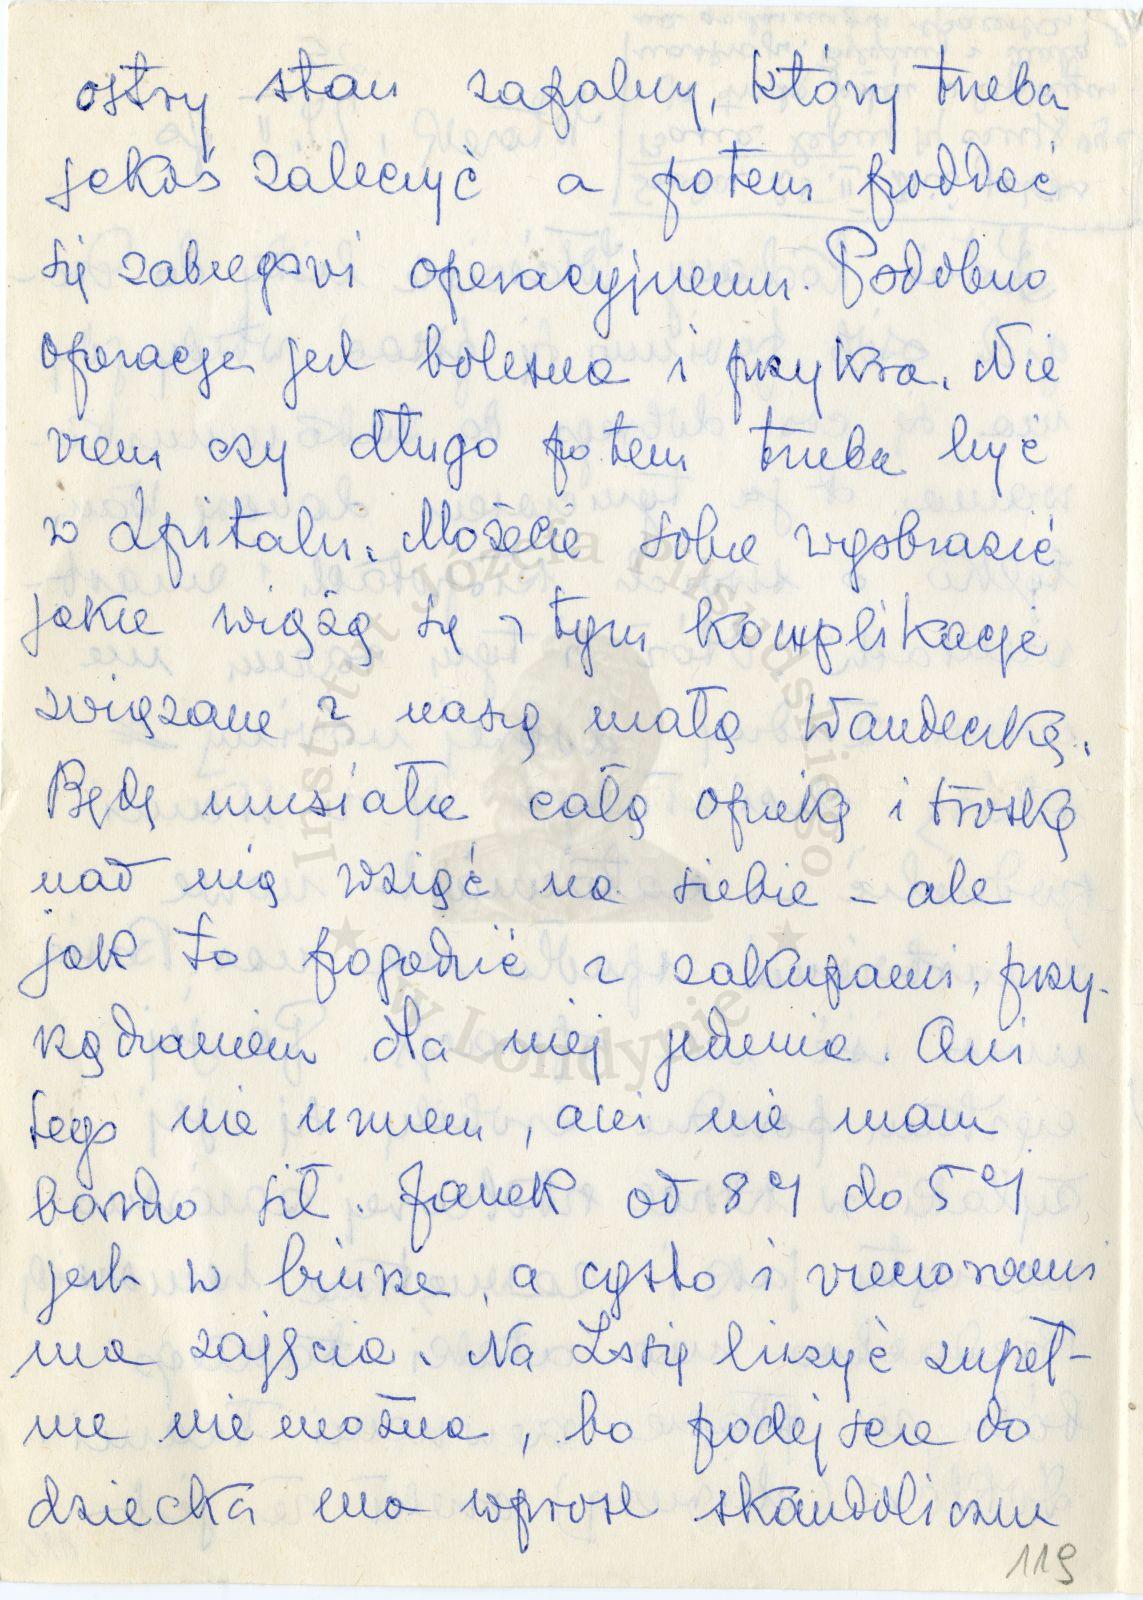 ostry stan zapalny, który trzeba
jakoś zaleczyć a potem poddać
się zabiegowi operacyjnemu. Podobno
operacja jest bolesna i przykra. Nie
wiem czy długo potem trzeba być
w szpitalu. Możecie sobie wyobrazić
jakie wiążą się z tym komplikacje
związane z naszą małą Wandeczką.
Będę musiała całą opiekę i troskę
nad nią wziąć na siebie – ale
jak to pogodzić z zakupami, przy-
rządzaniem dla niej jedzenia. Ani
tego nie umiem, ani nie mam
bardzo sił. Janek od 8ej do 5ej
jest w biurze, a często i wieczorami
ma zajęcia. Na Zosię liczyć zupeł-
nie nie można, bo podejście do
dziecka ma wprost skandaliczne
119
Instytut Józefa Piłsudskiego
w Londynie